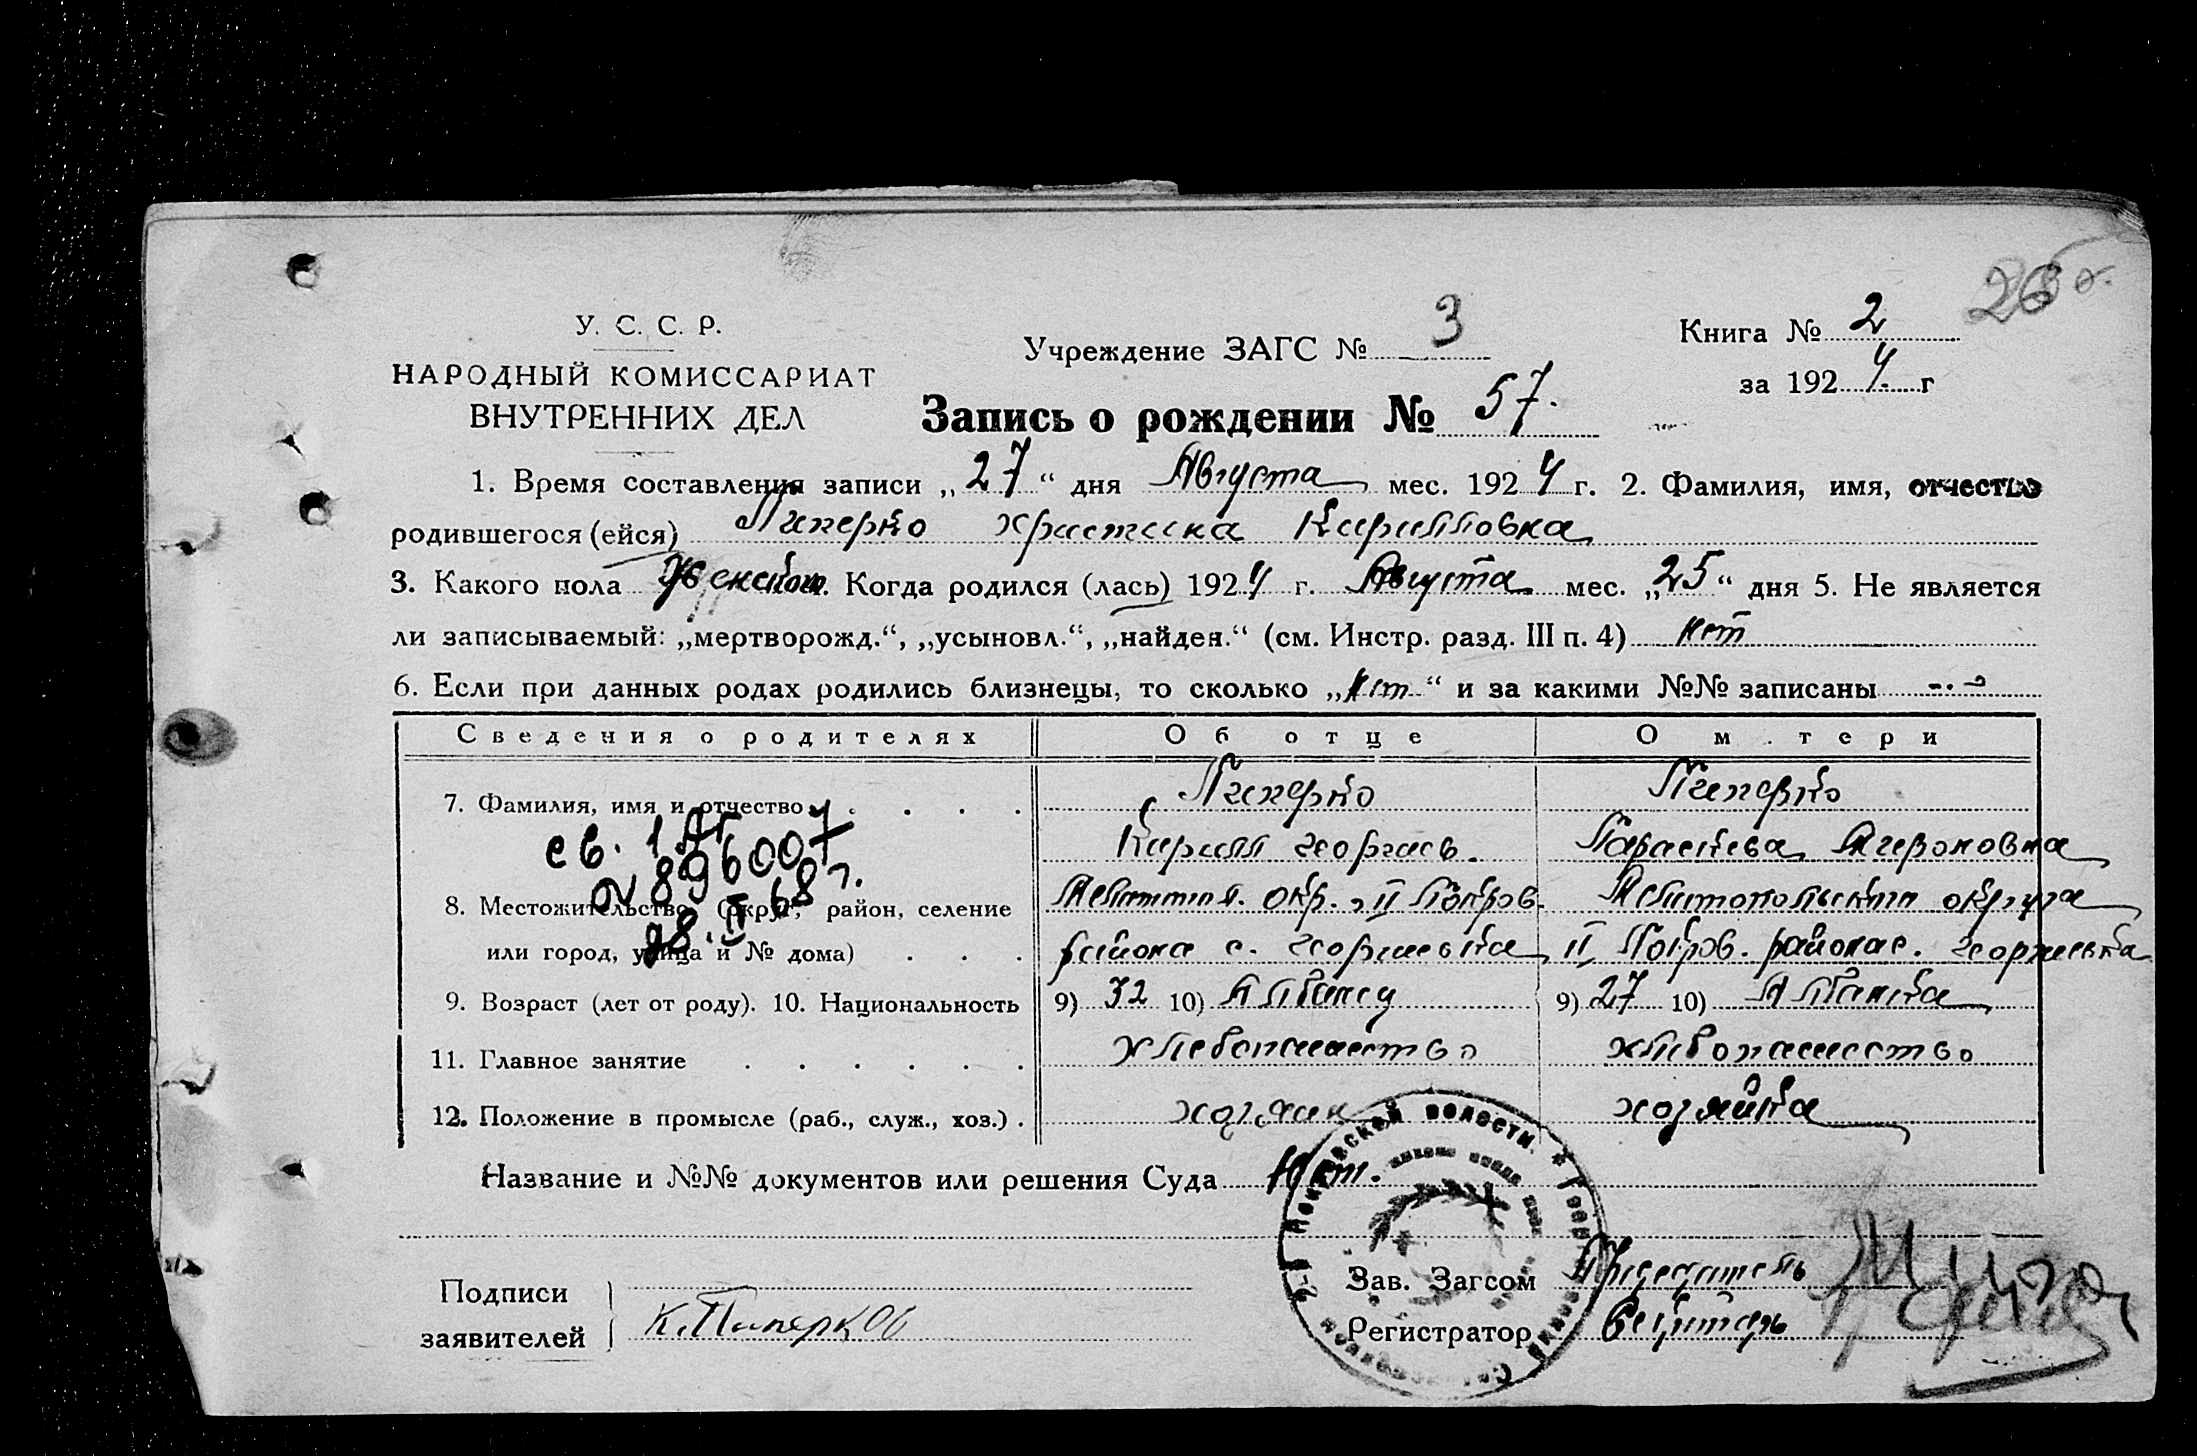 26
У. С. С. Р.
НАРОДНЫЙ КОМИССАРИАТ
ВНУТРЕННИХ ДЕЛ
Учреждение ЗАГС № 3
Книга № 2
за 1924 г
Запись о рождении № 57.
1. Время составления записи „27“ дня Августа мес. 1924 г. 2. Фамилия, имя, отчество
родившегося (ейся) Пиперко Христина Кирилловна
3. Какого пола Женской. Когда родился (лась) 1924 г. Августа мес. „25“ дня 5. Не является
ли записываемый: „мертворожд.“, „усыновл.“, „найден.“ (см. Инстр. разд. III п. 4) нет
6. Если при данных родах родились близнецы, то сколько „нет“ и за какими №№ записаны
Сведения о родителях Об отце О м.тери
7. Фамилия, имя и отчество Пиперко Пиперко
Кирилл Георгиев. Параскева
св. 1
№ 896007
28.II 68 г.
8. Местожительство (округ, район, селение Мелитоп. окр., II Покров. Мелитопольского округа
или город, улица и № дома) района с. Георгиевка II Покров. района с. Георгиевка
9. Возраст (лет от роду). 10. Национальность 9) 32 10) Албанец 9) 27 10) Албанка
11. Главное занятие Хлебопашество хлебопашество
12. Положение в промысле (раб., служ., хоз.) хозяин хозяйка
Название и №№ документов или решения Суда Нет.
Подписи
заявителей К. Пиперков
Зав. Загсом Председатель
Регистратор Секритарь
волости